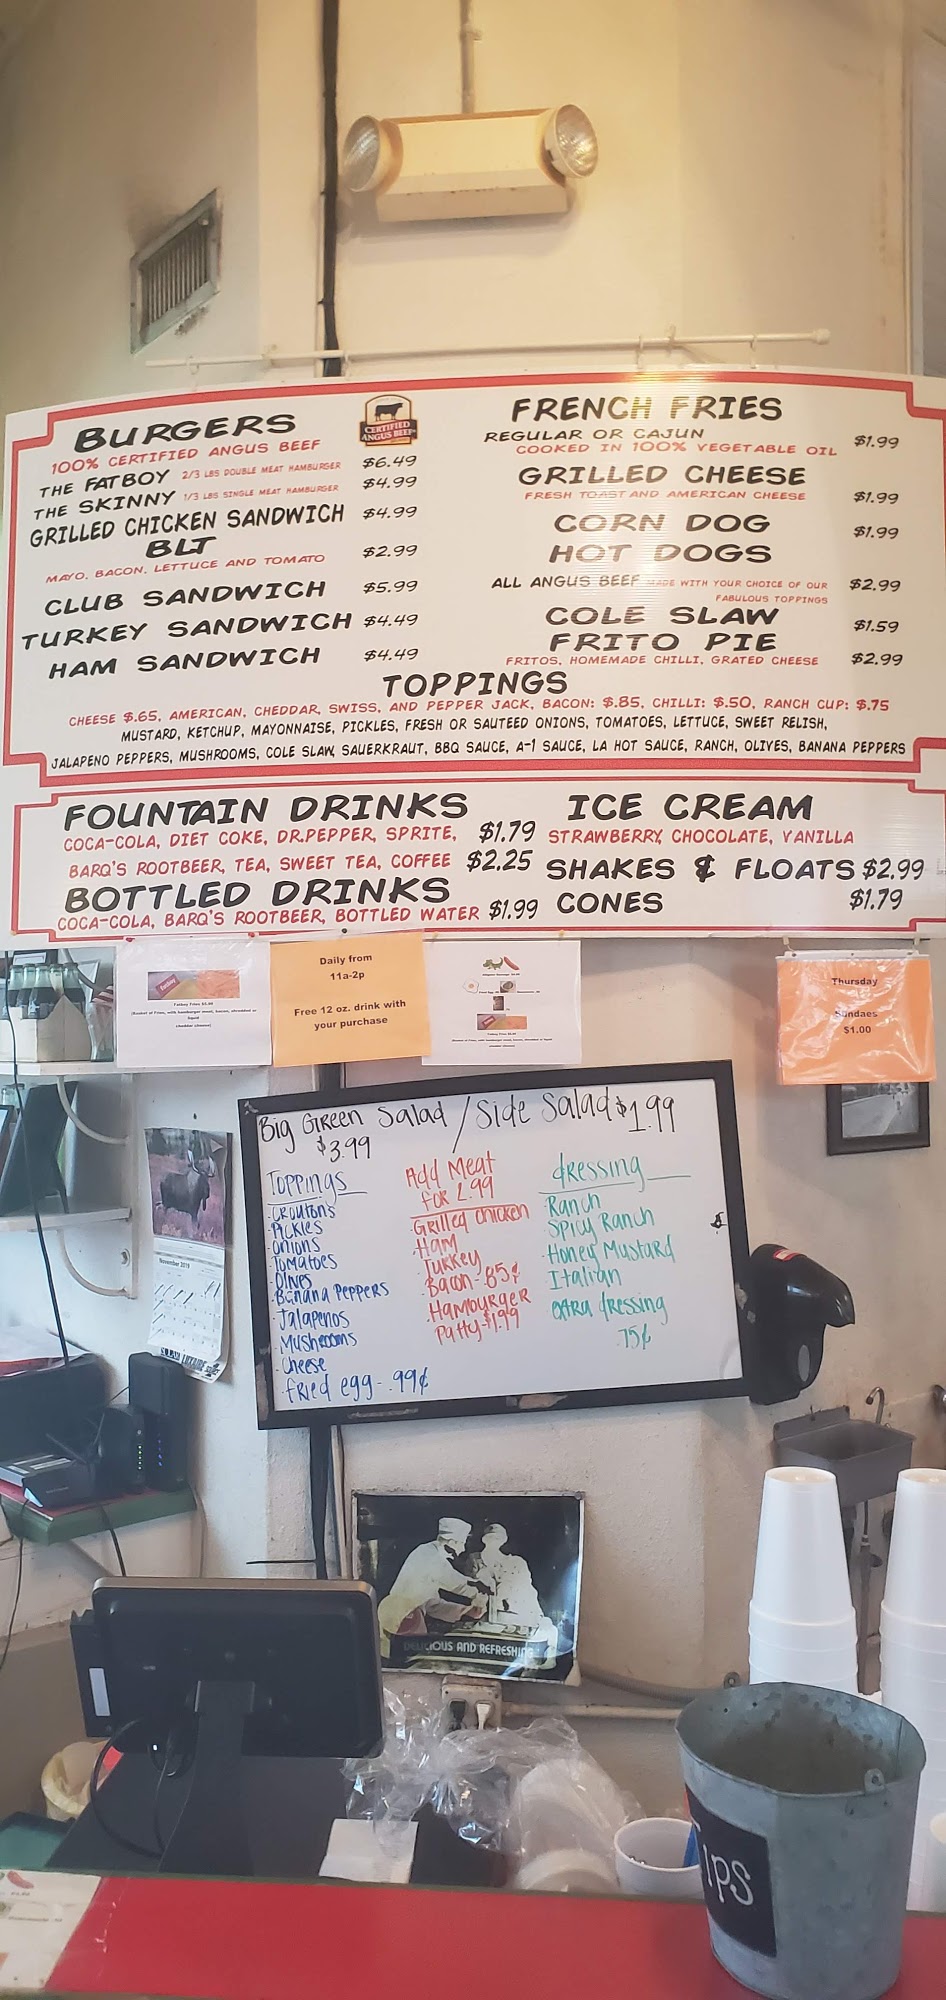 BURGERS
100% CERTIFIED ANGUS BEEF
CERTIFIED
ANGUS BEEF
THE FATBOY 2/3 LBS DOUBLE MEAT HAMBURGER $6.49
THE SKINNY 1/3 LBS SINGLE MEAT HAMBURGER $4.99
GRILLED CHICKEN SANDWICH $4.99
BLT $2.99
MAYO, BACON, LETTUCE AND TOMATO
CLUB SANDWICH $5.99
TURKEY SANDWICH $4.49
HAM SANDWICH $4.49
FRENCH FRIES
REGULAR OR CAJUN $1.99
COOKED IN 100% VEGETABLE OIL
GRILLED CHEESE
FRESH TOAST AND AMERICAN CHEESE $1.99
CORN DOG $1.99
HOT DOGS
ALL ANGUS BEEF MADE WITH YOUR CHOICE OF OUR $2.99
FABULOUS TOPPINGS
COLE SLAW $1.59
FRITO PIE
FRITOS, HOMEMADE CHILLI, GRATED CHEESE $2.99
TOPPINGS
CHEESE $.65, AMERICAN, CHEDDAR, SWISS, AND PEPPER JACK, BACON: $.85, CHILLI: $.50, RANCH CUP: $.75
MUSTARD, KETCHUP, MAYONNAISE, PICKLES, FRESH OR SAUTEED ONIONS, TOMATOES, LETTUCE, SWEET RELISH,
JALAPENO PEPPERS, MUSHROOMS, COLE SLAW, SAUERKRAUT, BBQ SAUCE, A-1 SAUCE, LA HOT SAUCE, RANCH, OLIVES, BANANA PEPPERS
FOUNTAIN DRINKS
COCA-COLA, DIET COKE, DR.PEPPER, SPRITE, $1.79
BARQ'S ROOTBEER, TEA, SWEET TEA, COFFEE $2.25
BOTTLED DRINKS
COCA-COLA, BARQ'S ROOTBEER, BOTTLED WATER $1.99
ICE CREAM
STRAWBERRY, CHOCOLATE, VANILLA
SHAKES & FLOATS $2.99
CONES $1.79
Fatboy Fries $5.99
(Basket of Fries, with hamburger meat, bacon, shredded or
liquid
cheddar cheese)
Daily from
11a-2p
Free 12 oz. drink with
your purchase
Thursday
Sundaes
$1.00
Big Green Salad / Side Salad $1.99
$3.99
Toppings
-Crouton's
-Pickles
-Onions
-Tomatoes
-Olives
-Banana Peppers
-Jalapenos
-Mushrooms
-Cheese
-fried egg- .99¢
Add Meat
for 2.99
-Grilled chicken
-Ham
-Turkey
-Bacon- 85¢
-Hamburger
Patty-$1.99
dressing
Ranch
Spicy Ranch
Honey Mustard
Italian
extra dressing
.75¢
November 2019
DELICIOUS AND REFRESHING
Tips